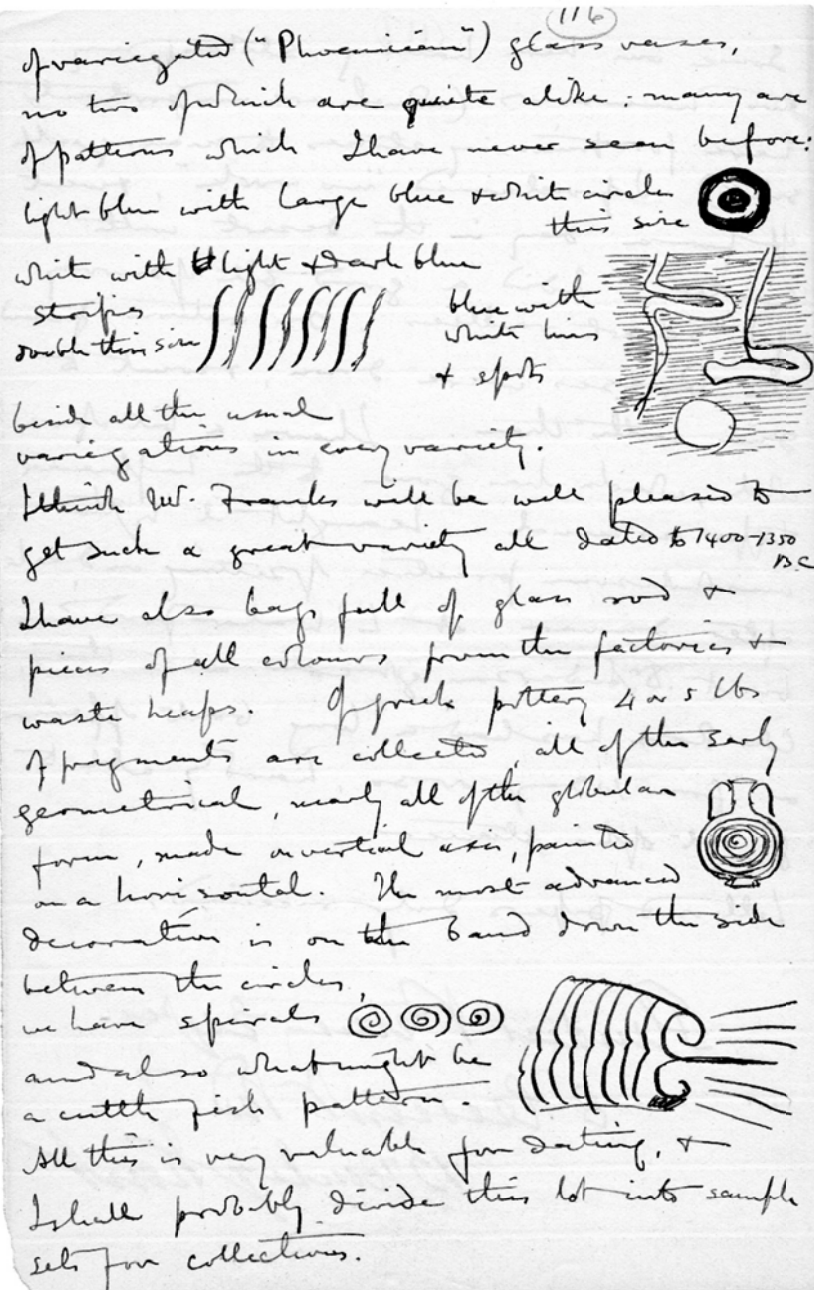 116
of variegated ("Phoenician") glass vases,
no two of which are quite alike: many are
of patterns which I have never seen before:
light blue with large blue & white circles
this size
white with light & dark blue
stripes
double this size
blue with
white lines
& spots
beside all the usual
variegations in every variety.
I think Mr. Franks will be well pleased to
get such a great variety all dated to 1400-1350
B.C
I have also bags full of glass rod &
pieces of all colours from the factories &
waste heaps. Of Greek pottery 4 or 5 lbs
of fragments are collected, all of the early
geometrical, nearly all of the globular
form, made on vertical axes, painted
on a horizontal. The most advanced
decoration is on the band down the side
between the circles,
we have spirals
and also what might be
a cuttle fish pattern.
All this is very valuable for dating, &
I shall probably divide this lot into sample
sets for collections.